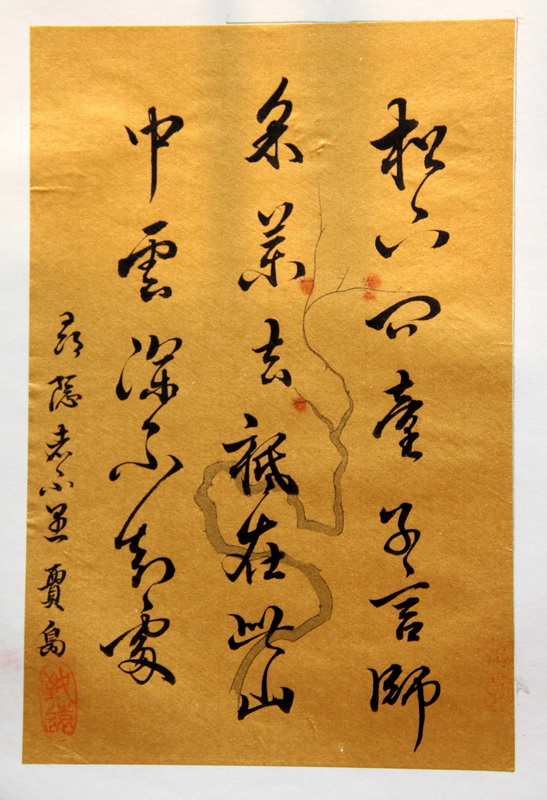 松下問童子言師
采藥去祗在此山
中雲深不知處
尋隱者不遇 賈島